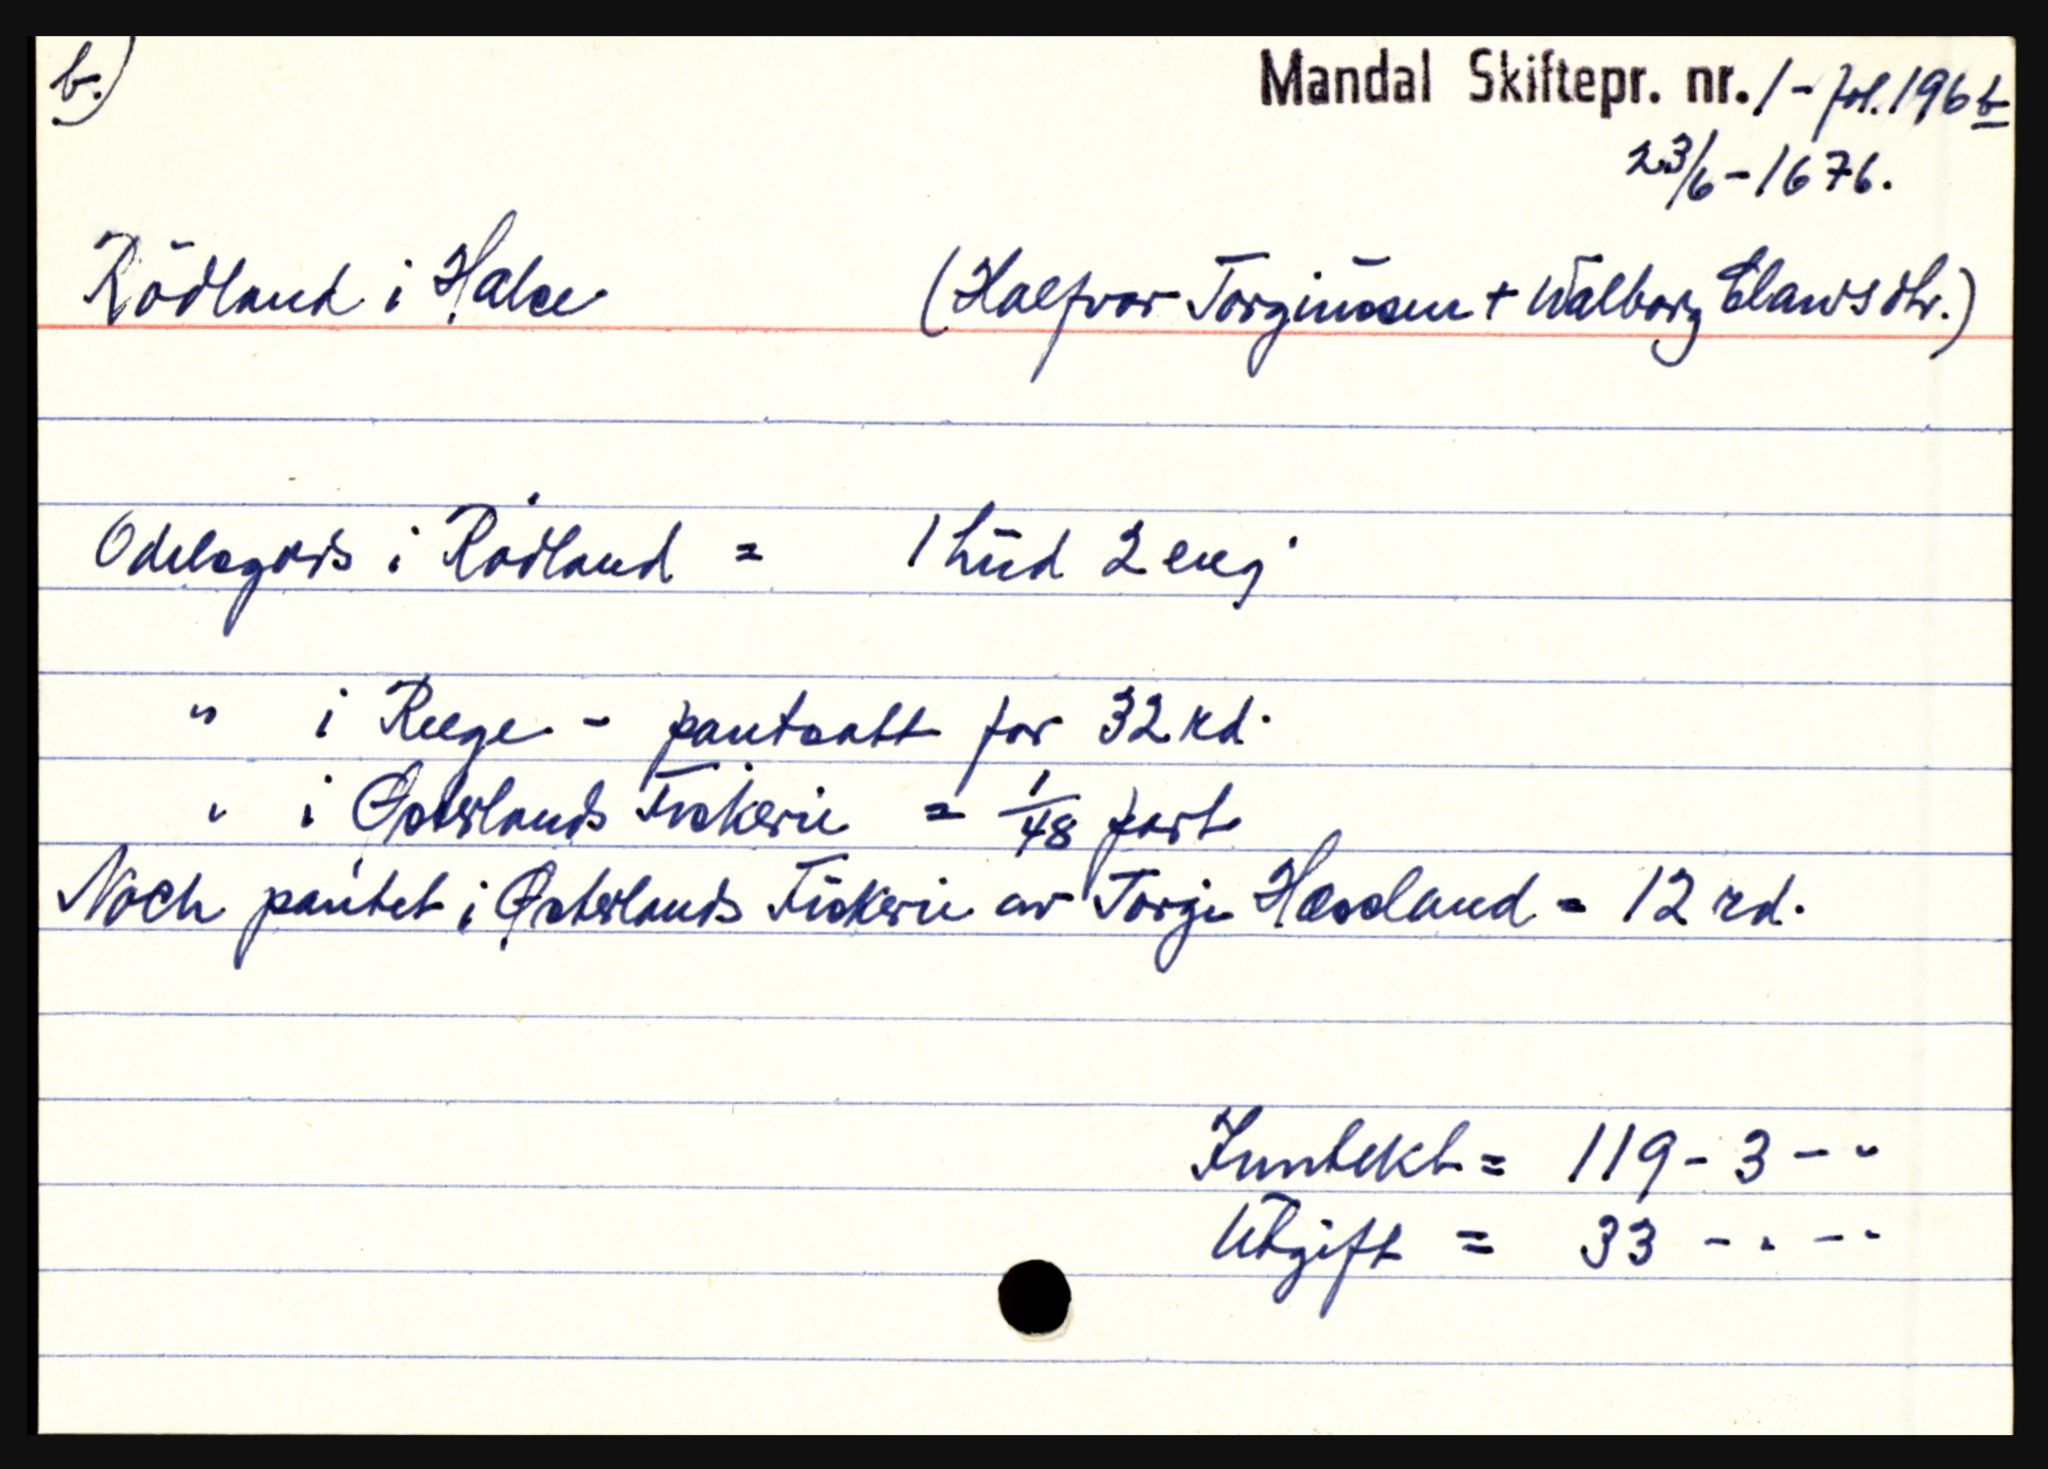 b.)
Mandal Skiftepr. nr. 1 - fol. 196 b
23/6 - 1676.
Rödland i Halse (Halfvor Torgiusen + Walborg Elawsdtr.)
Odelsgods i Rödland = 1 hud 2 eng
" i Reege - pantsatt for 32 rd.
" i Østerlands Fiskerie = 1/48 part
Noch pantet i Østerlands Fiskerie av Torgi Hæseland = 12 rd.
Inntekt = 119 - 3 - "
Utgift = 33 - " - "